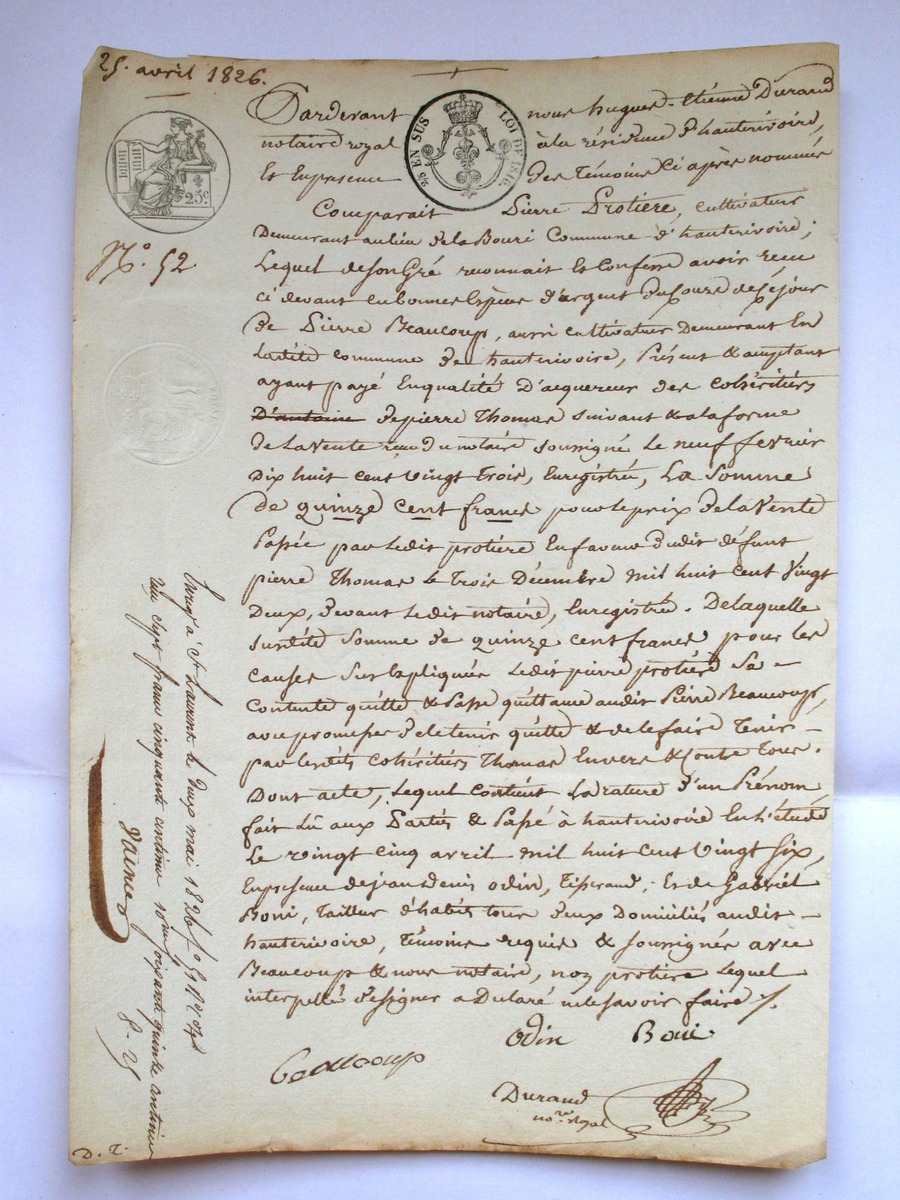 25. avril 1826.
Pardevant nous hugues-étienne Durand
notaire royal à la résidence d'hauterivoire,
Et En presence des Témoins Ci après nommés
Comparait Pierre Protiere, cultivateur
Demeurant au lieu de la Bouri Commune d'hauterivoire;
Lequel de son Gré reconnait Et Confesse avoir recu
ci devant en bonnes Espèces d'argent du Cours de Séjour
de Pierre Beaucoup, aussi cultivateur Demeurant En
Ladité commune de hauterivoire, Présent & acceptant
ayant payé En qualité D'acquereur des Cohéritiérs
D'antoine de pierre Thomas suivant & a la forme
de La Vente recu du notaire soussigné Le neuf fevrier
Dix huit cent Vingt Trois, Enregistrée, La Somme
de quinze cent francs pour le prix de La Vente
Passée par Ledit protière En faveur dudit défunt
pierre Thomas Le Trois Décembre mil huit cent Vingt
Deux, devant Ledit notaire, Enregistrée. De laquelle
Susdité Somme de quinze cent francs pour les
causes Sus Expliquées Ledit pierre protière Sa
Contente quitte & Passe quittance audit Pierre Beaucoup,
avec promesse de le tenir quitte & de le faire Tenir
par lesdits Cohéritiérs Thomas Envers & Contre Tous.
Dont acte, Lequel Contient La rature d'un Prénom
fait Lû aux Partiés & Passé à hauterivoire En L'étude
Le Vingt Cinq avril mil huit Cent Vingt Six,
En présence de jean Denis Odin, Tisserand, Et de Gabriel
Boni, Tailleur d'habits tous deux Domiciliés audit
hauterivoire, Témoins requis & soussignés avec
Beaucoup & nous notaire, non protiere Lequel
interpellé de signer a Déclaré ne le savoir faire
Odin Boni
Beaucoup
Durand
no.re royal
25c
2/5 EN SUS LOI DE 1816.
N.o 52
Enreg. à St Laurent le deux mai 1826 f.o
sept francs cinquante centimes 10.e soixante quinze centimes
8-25
D. T.